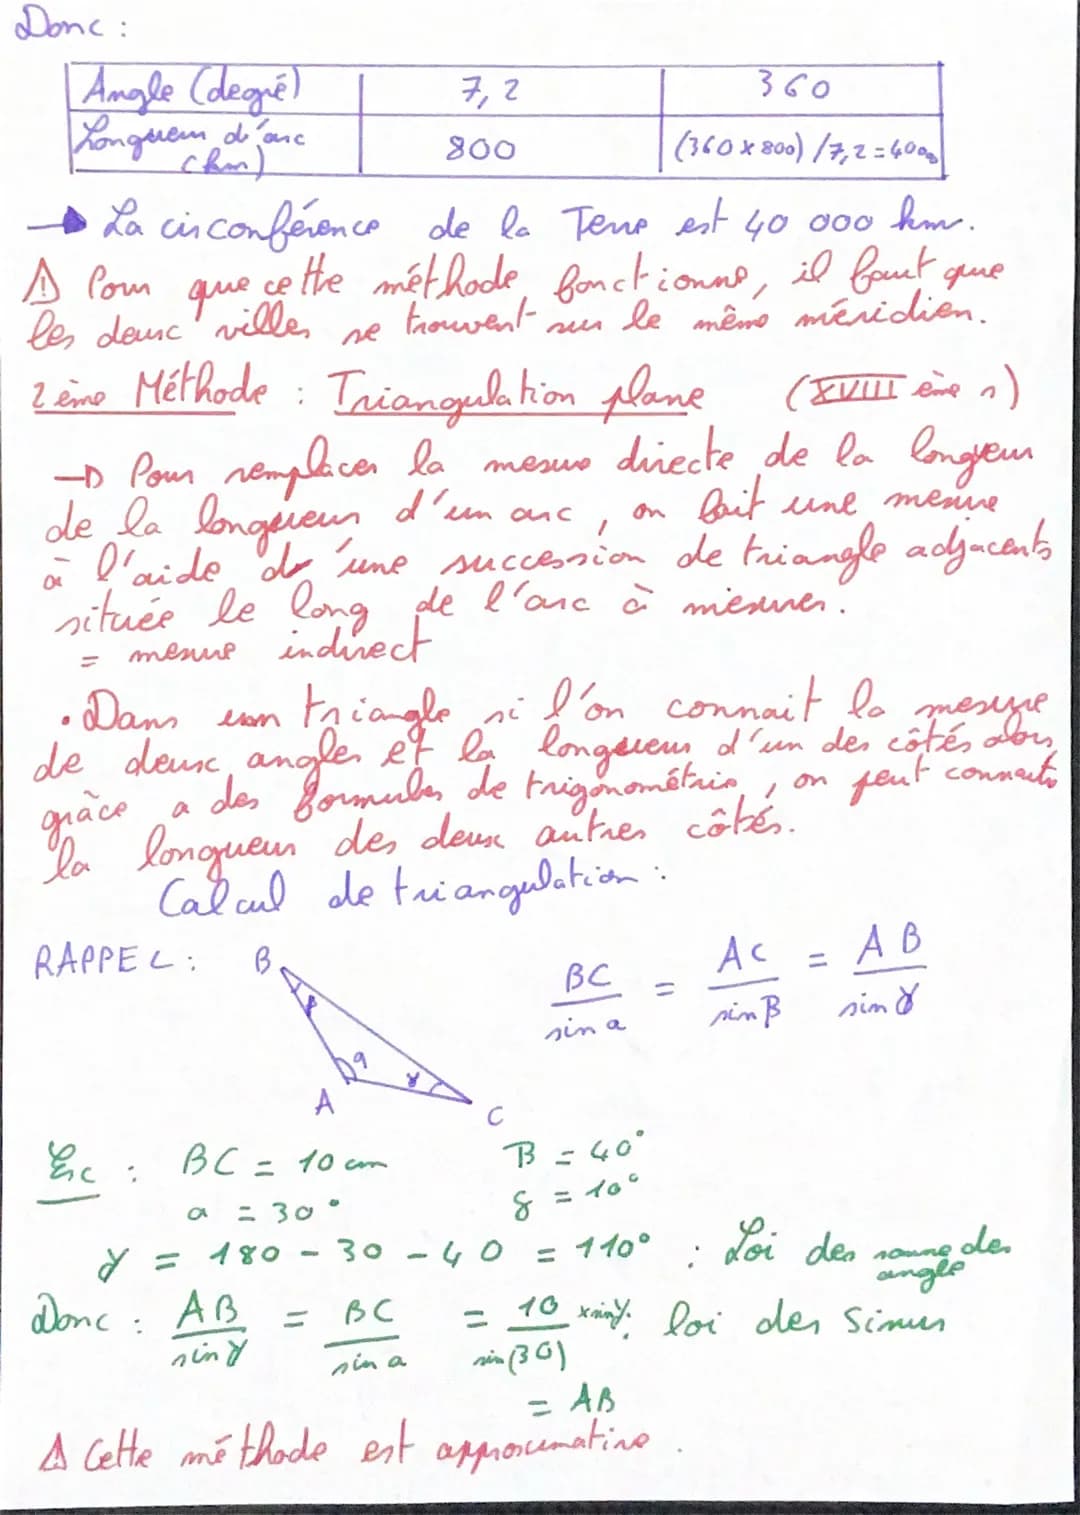 Donc :
Angle (degré) 7,2 360
Longueur d'arc (km) 800 (360 x 800) / 7,2 = 40000
→ La circonférence de la Terre est 40 000 km.
⚠ Pour que cette méthode fonctionne, il faut que
les deux villes se trouvent sur le même méridien.
2ème Méthode : Triangulation plane (XVIII ème s)
→ Pour remplacer la mesure directe de la longueur
de la longueur d'un arc, on fait une mesure
à l'aide d'une succession de triangle adjacents
située le long de l'arc à mesurer.
= mesure indirect
• Dans un triangle si l'on connait la mesure
de deux angles et la longueur d'un des côtés alors
grâce a des formules de trigonométrie, on peut connaitre
la longueur des deux autres côtés.
Calcul de triangulation :
RAPPEL :
B β
a
γ
A
C
BC / sin a = AC / sin β = AB / sin γ
Ex : BC = 10 cm B = 40°
a = 30° γ = 10°
γ = 180 - 30 - 40 = 110° : Loi des somme des angle
Donc : AB / sin γ = BC / sin a = 10 / sin(30) x sin γ. loi des sinus
= AB
⚠ Cette méthode est approximative.